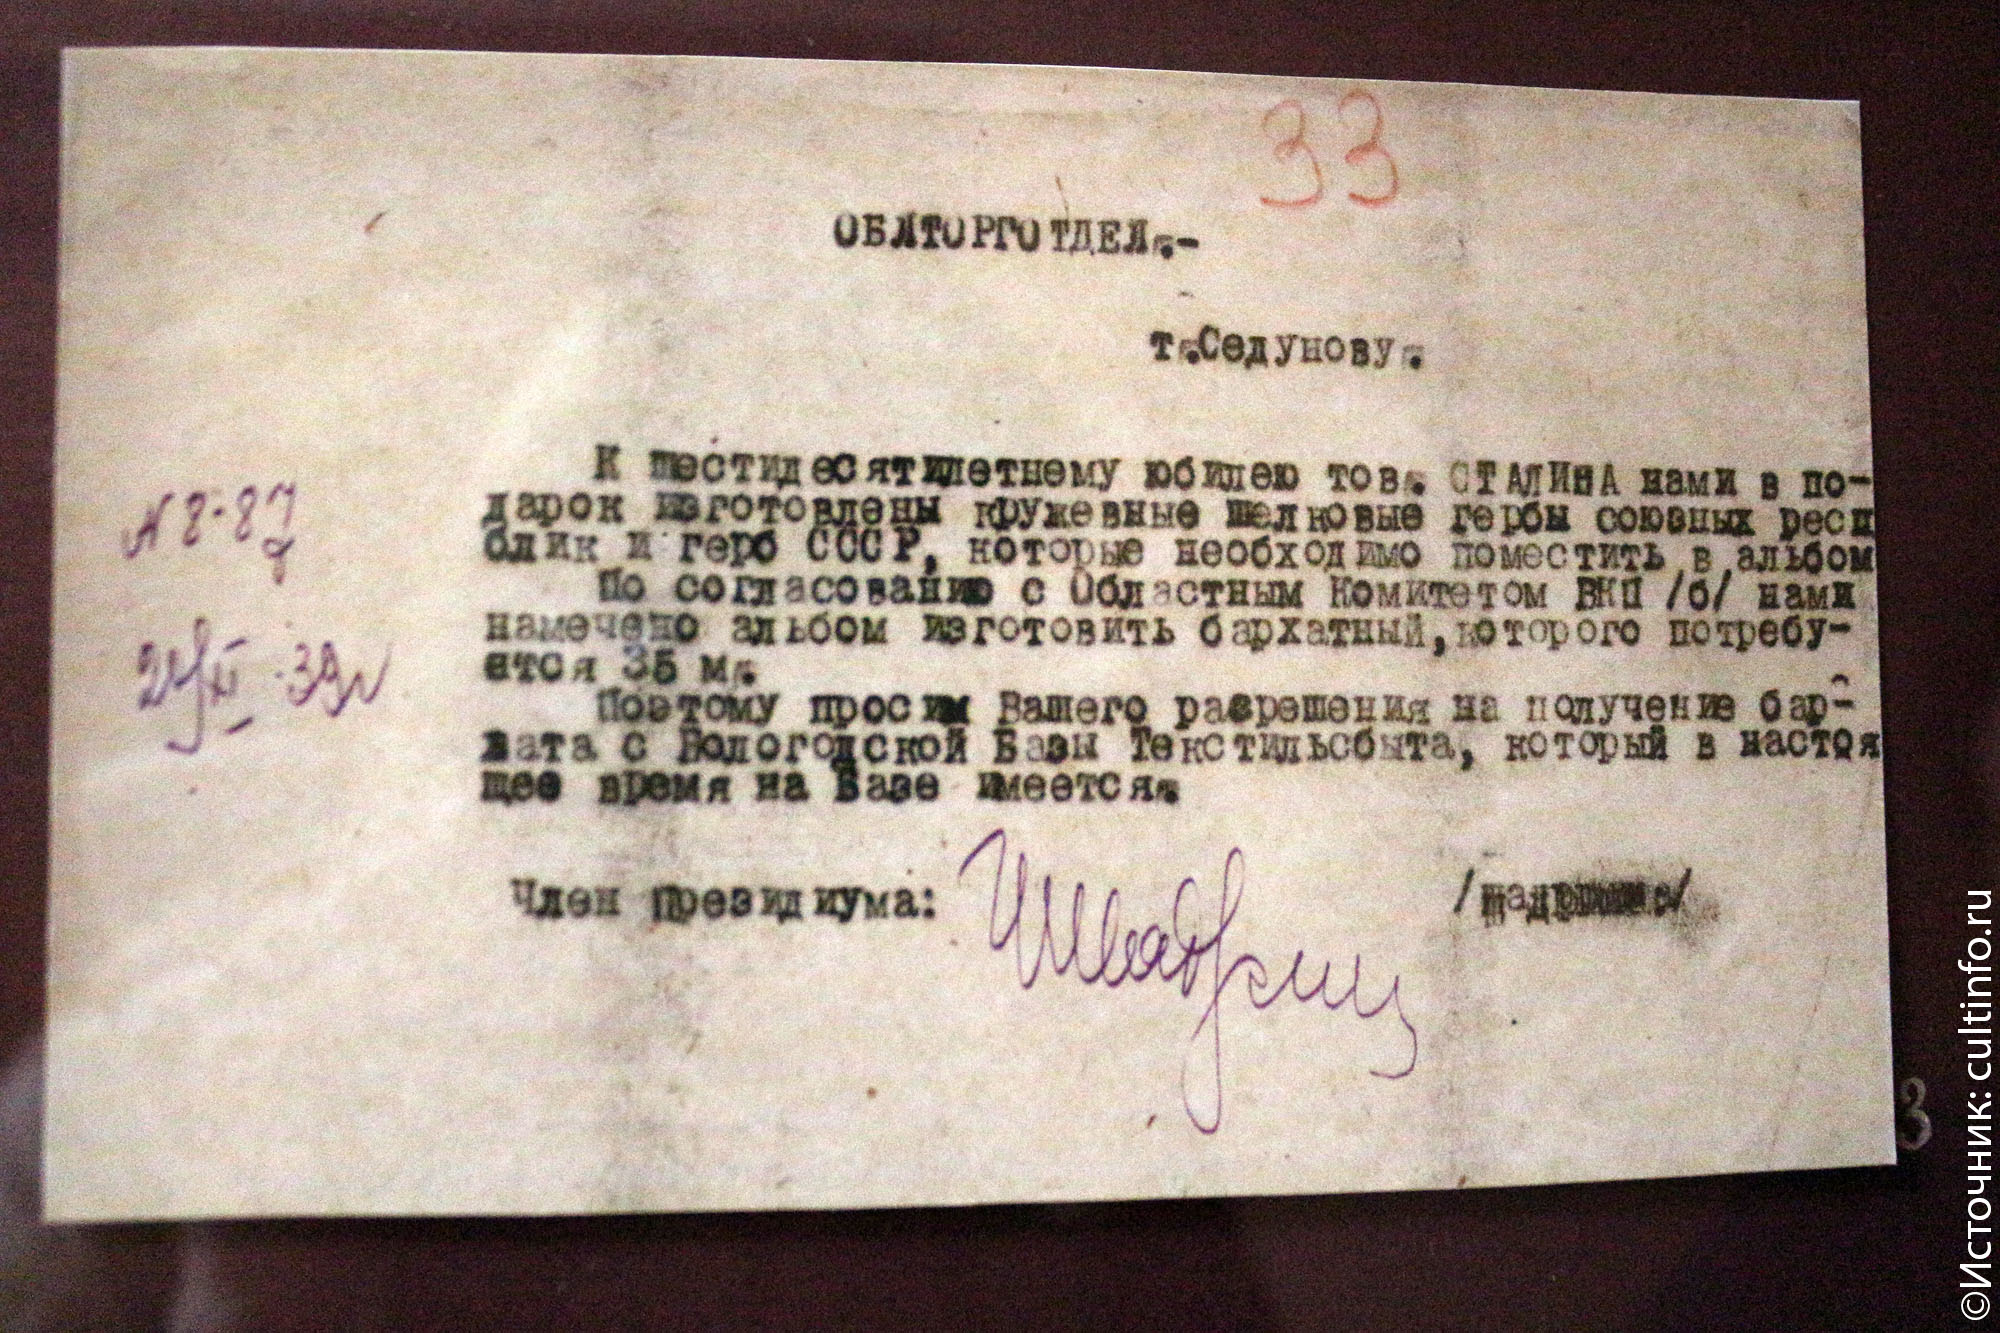 33
ОБЛТОРГОТДЕЛ.-
т.Седунову.
К шестидесятилетнему юбилею тов. СТАЛИНА нами в по-
дарок изготовлены кружевные шелковые гербы союзных респ
блик и герб СССР, которые необходимо поместить в альбом
По согласованию с Областным Комитетом ВКП /б/ нами
намечено альбом изготовить бархатный,которого потребу-
ется 35 м.
Поэтому просим Вашего разрешения на получение бар-
хата с Вологодской Базы Текстильсбыта, который в настоя
щее время на Базе имеется.
N 8-87
XI 39г
Член президиума:
3
©Источник: cultinfo.ru